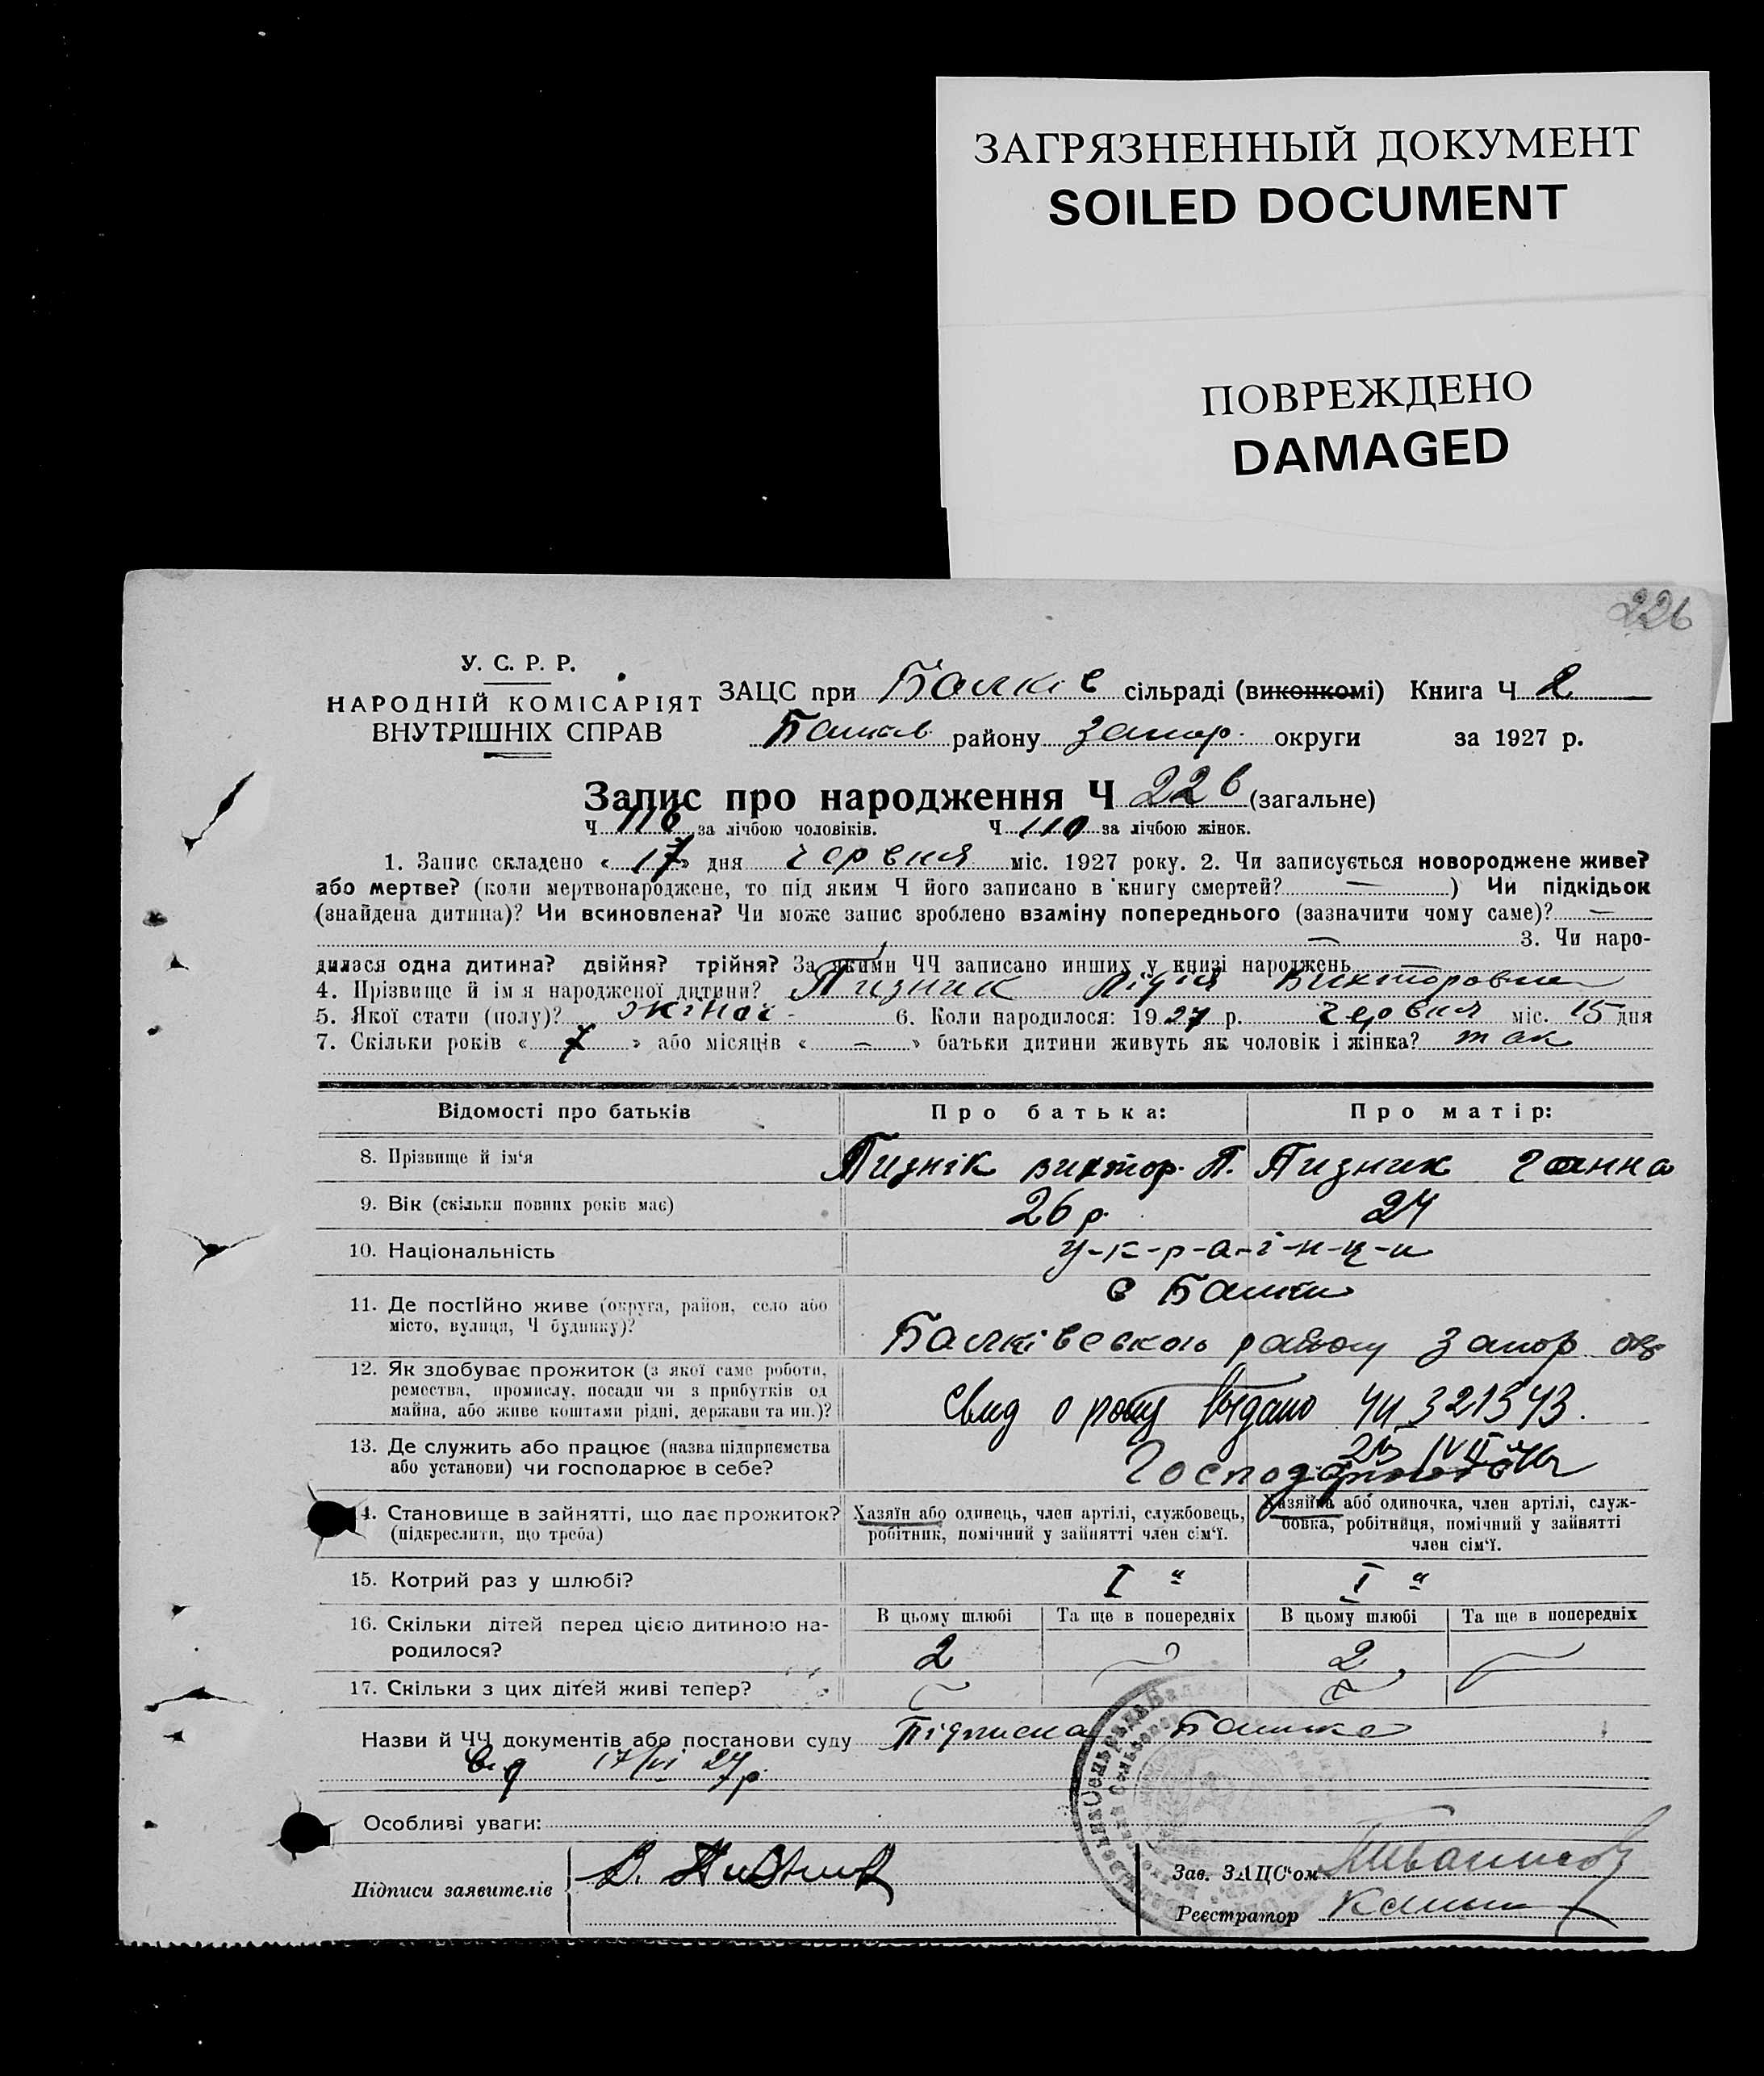 ЗАГРЯЗНЕННЫЙ ДОКУМЕНТ
SOILED DOCUMENT
ПОВРЕЖДЕНО
DAMAGED
226
У. С. Р. Р.
НАРОДНІЙ КОМІСАРІЯТ
ВНУТРІШНІХ СПРАВ
ЗАЦС при Балків сільраді (виконкомі) Книга Ч 2
району Запор. округи за 1927 р.
Запис про народження Ч 226 (загальне)
Ч 116 за лічбою чоловіків. Ч 110 за лічбою жінок.
1. Запис складено «17» дня червня міс. 1927 року. 2. Чи записується новороджене живе?
або мертве? (коли мертвонароджене, то під яким Ч його записано в книгу смертей? — ) Чи підкідьок
(знайдена дитина)? Чи всиновлена? Чи може запис зроблено взаміну попереднього (зазначити чому саме)? —
— 3. Чи наро-
дилася одна дитина? двійня? трійня? За якими ЧЧ записано инших у книзі народжень
4. Прізвище й ім я народженої дитини? Пизник Лідія Викторовна
5. Якої стати (полу)? жіноі - 6. Коли народилося: 1927 р. червня міс. 15 дня
7. Скільки років «7» або місяців « — » батьки дитини живуть як чоловік і жінка? так
Відомості про батьків Про батька: Про матір:
8. Прізвище й ім'я Пизнік виктор. П. Пизник Ганна
9. Вік (скільки повних років має) 26 р. 24
10. Національність у-к-р-а-ї-н-ц-и
11. Де постійно живе (округа, район, село або
місто, вулиця, Ч будинку)? Балківського району Запор
12. Як здобуває прожиток (з якої саме роботи,
ремества, промислу, посади чи з прибутків од
майна, або живе коштами рідні, держави та ин.)? Свид о рожд выдано ЧИ 321343.
13. Де служить або працює (назва підприємства
або установи) чи господарює в себе?
14. Становище в зайнятті, що дає прожиток?
(підкреслити, що треба)
Хазяїн або одинець, член артілі, службовець,
робітник, помічний у зайнятті член сім'ї.
Хазяйка або одиночка, член артілі, служ-
бовка, робітниця, помічний у зайнятті
член сім'ї.
15. Котрий раз у шлюбі? I " I "
16. Скільки дітей перед цією дитиною на-
родилося?
В цьому шлюбі Та ще в попередніх В цьому шлюбі Та ще в попередніх
2 2
17. Скільки з цих дітей живі тепер?
Назви й ЧЧ документів або постанови суду Підписка Батька
від 17/VI 27 р.
Особливі уваги:
Підписи заявителів В. Пизник
Зав. ЗАЦС'ом
Реєстратор